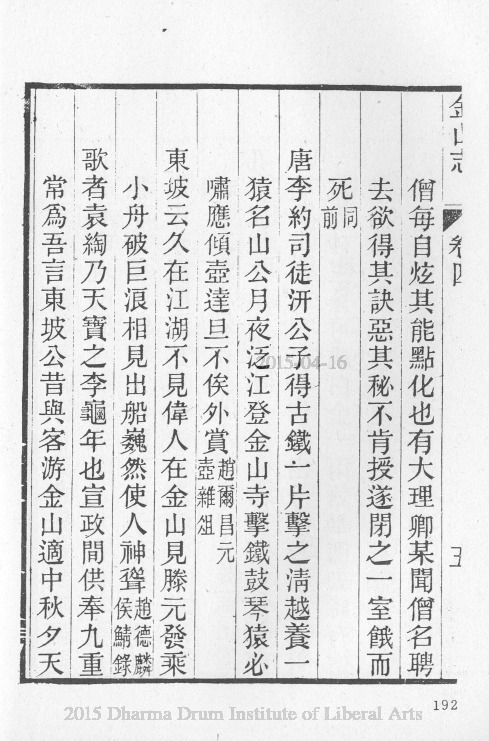 金山志　卷四　五
僧每自炫其能點化也有大理卿某聞僧名聘
去欲得其訣惡其秘不肯授遂閉之一室餓而
死同前
唐李約司徒汧公子得古鐵一片擊之清越養一
猿名山公月夜泛江登金山寺擊鐵鼓琴猿必
嘯應傾壺達旦不俟外賞趙爾昌元壺雜俎
東坡云久在江湖不見偉人在金山見滕元發乘
小舟破巨浪相見出船巍然使人神聳趙德麟侯鯖錄
歌者袁綯乃天寶之李龜年也宣政間供奉九重
常爲吾言東坡公昔與客游金山適中秋夕天
192
2015-04-16
2015 Dharma Drum Institute of Liberal Arts